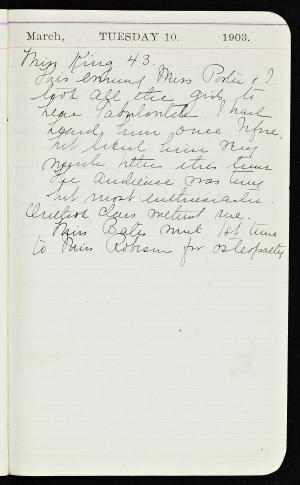 March, TUESDAY 10. 1903.
Miss King 43.
This evening Miss Porter & I
took all the girls to
hear Gabrilowitch. I had
heard him once before,
but liked him very
much better this time
The audience was tiny
but most enthusiastic.
English class without me.
Miss Bates went 1st time
to Miss Robison for osteopathy